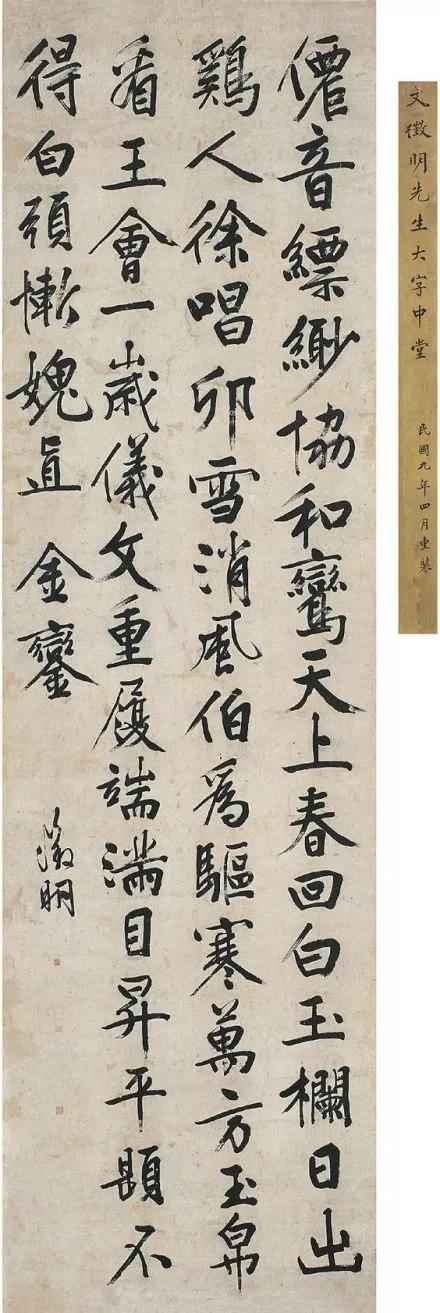 文徵明先生大字中堂
民國九年四月重裝
僊音縹緲協和鸞天上春回白玉欄日出
鷄人徐唱卯雪消風伯爲驅寒萬方玉帛
看王會一歲儀文重履端滿目昇平題不
得白頭慚愧直金鑾
徵明